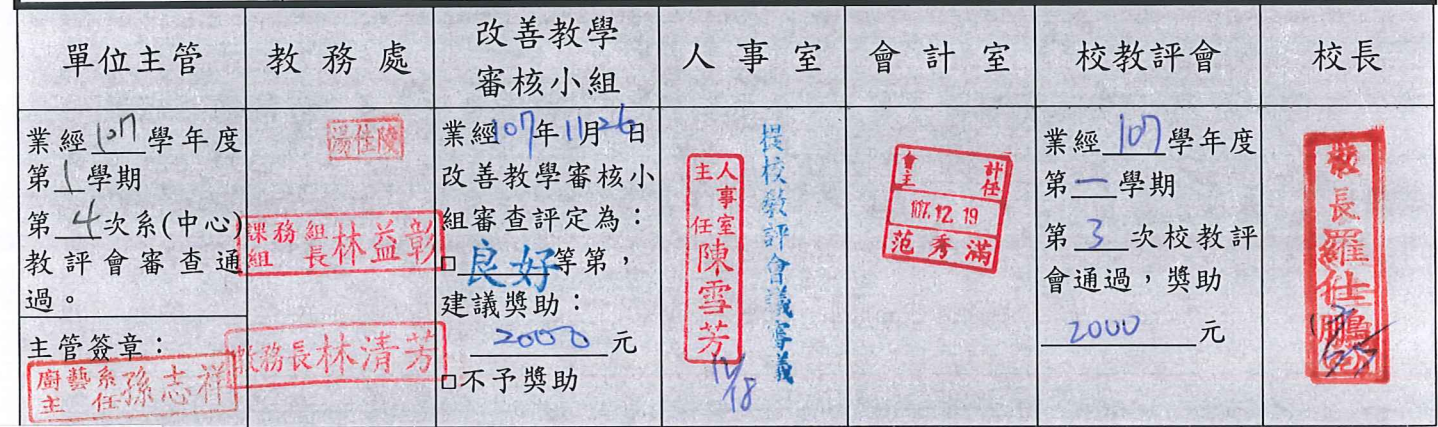 單位主管
教務處
改善教學
審核小組
人事室
會計室
校教評會
校長
業經107學年度
第1學期
第4次系(中心)
教評會審查通
過。
主管簽章：
廚藝系
主任
孫志祥
湯佳陵
課務組
組長
林益彰
教務長林清芳
業經107年11月26日
改善教學審核小
組審查評定為：
□良好等第，
建議獎助：
2000元
□不予獎助
提校教評會議審議
人事室
主任
陳雪芳
12/18
會計
主任
107.12.19
范秀滿
業經107學年度
第一學期
第3次校教評
會通過，獎助
2000元
校長羅仕鵬